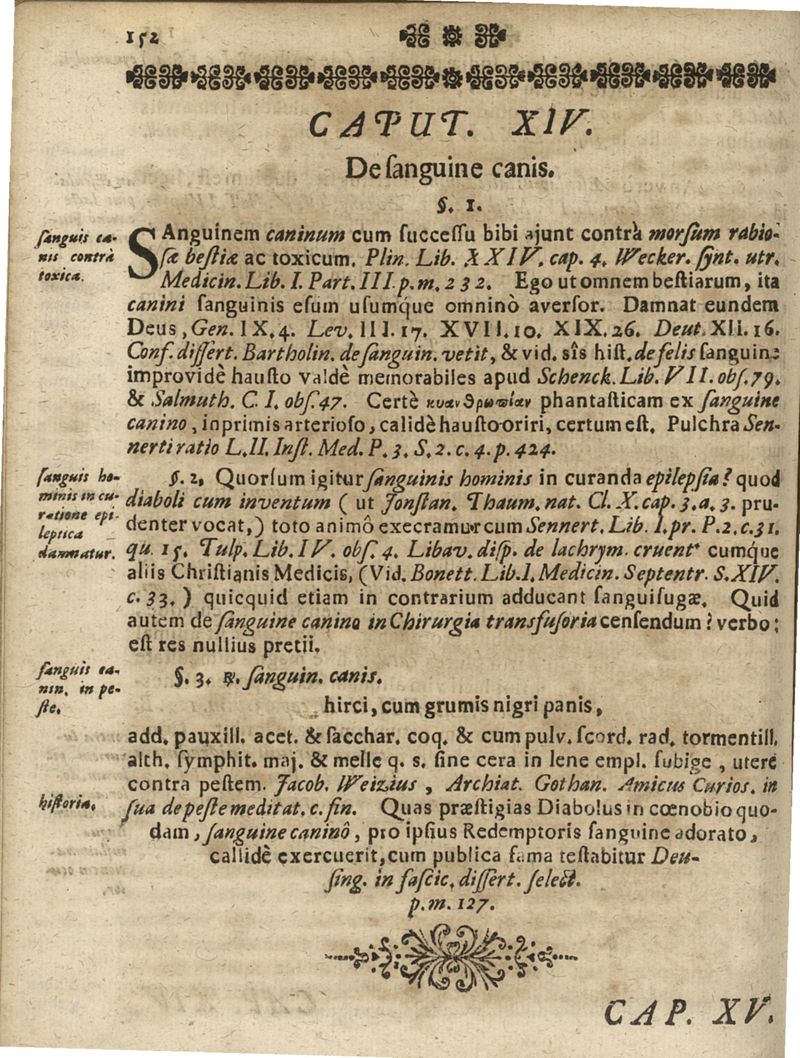 152
CAPUT. XIV.
De sanguine canis.
§. 1.
sanguis ca-
nis contrà
toxica.
SAnguinem caninum cum successu bibi ajunt contrà morsum rabio-
sæ bestiæ ac toxicum. Plin. Lib. XXIV. cap. 4. Wecker. synt. utr.
Medicin. Lib. I. Part. III. p. m. 232. Ego ut omnem bestiarum, ita
canini sanguinis esum usumque omninò aversor. Damnat eundem
Deus, Gen. IX. 4. Lev. III. 17. XVII. 10. XIX. 26. Deut. XII. 16.
Conf. dissert. Bartholin. de sanguin. vetit, & vid. sîs hist. de felis sanguine
improvidè hausto valdè memorabiles apud Schenck. Lib. VII. obs. 79.
& Salmuth. C. I. obs. 47. Certè κυανθρωπίαν phantasticam ex sanguine
canino, inprimis arterioso, calidè hausto oriri, certum est. Pulchra Sen-
nerti ratio L. II. Inst. Med. P. 3. S. 2. c. 4. p. 424.
sanguis ho-
minis in cu-
ratione epi-
leptica
damnatur.
§. 2. Quorsum igitur sanguinis hominis in curanda epilepsia? quod
diaboli cum inventum ( ut Jonstan. Thaum. nat. Cl. X. cap. 3. a. 3. pru-
denter vocat,) toto animô execramur cum Sennert. Lib. I. pr. P. 2. c. 31.
qu. 15. Tulp. Lib. IV. obs. 4. Libav. disp. de lachrym. cruent. cumque
aliis Christianis Medicis, (Vid. Bonett. Lib. I. Medicin. Septentr. S. XIV.
c. 33. ) quicquid etiam in contrarium adducant sanguisugæ. Quid
autem de sanguine canino in Chirurgia transfusoria censendum? verbo:
est res nullius pretii.
sanguis ca-
nin. in pe-
ste.
§. 3. ℞. sanguin. canis.
hirci, cum grumis nigri panis,
add. pauxill. acet. & sacchar. coq. & cum pulv. scord. rad. tormentill.
alth. symphit. maj. & melle q. s. sine cera in lene empl. subige, utere
contra pestem. Jacob. Weizius, Archiat. Gothan. Amicus Curios. in
historia.
sua de peste meditat. c. fin. Quas præstigias Diabolus in cœnobio quo-
dam, sanguine caninô, pro ipsius Redemptoris sanguine adorato,
callidè exercuerit, cum publica fama testabitur Deu-
sing. in fascic. dissert. select.
p. m. 127.
CAP. XV.